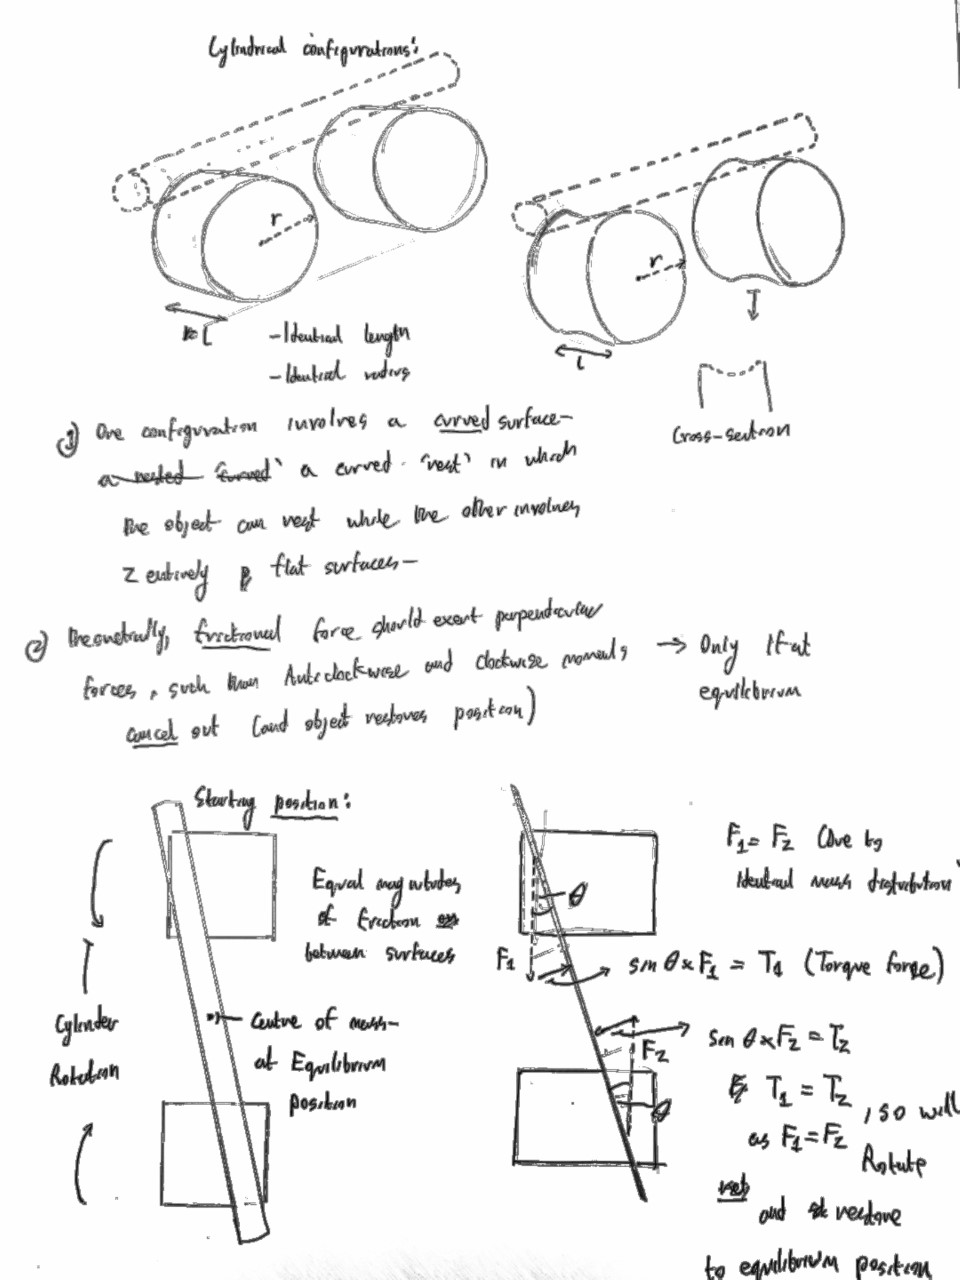 Cylindrical configurations:
r
r
L
L
- Identical length
- Identical radius
Cross-section
① One configuration involves a curved surface-
a nested 'curved' a curved 'rest' in which
the object can rest while the other involves
2 entirely flat surfaces-
② Theoretically, frictional force should exert perpendicular
forces, such that Anticlockwise and clockwise moments
cancel out (and object restores position)
→ Only if at
equilibrium
Starting position:
Equal magnitudes
of friction
between surfaces
Cylinder
Rotation
Centre of mass-
at Equilibrium
position
F₁ = F₂ (Due to
Identical mass distribution
θ
F₁
sin θ × F₁ = T₁ (Torque force)
F₂
sin θ × F₂ = T₂
θ
T₁ = T₂
as F₁ = F₂
, so will
Rotate
and restore
to equilibrium position